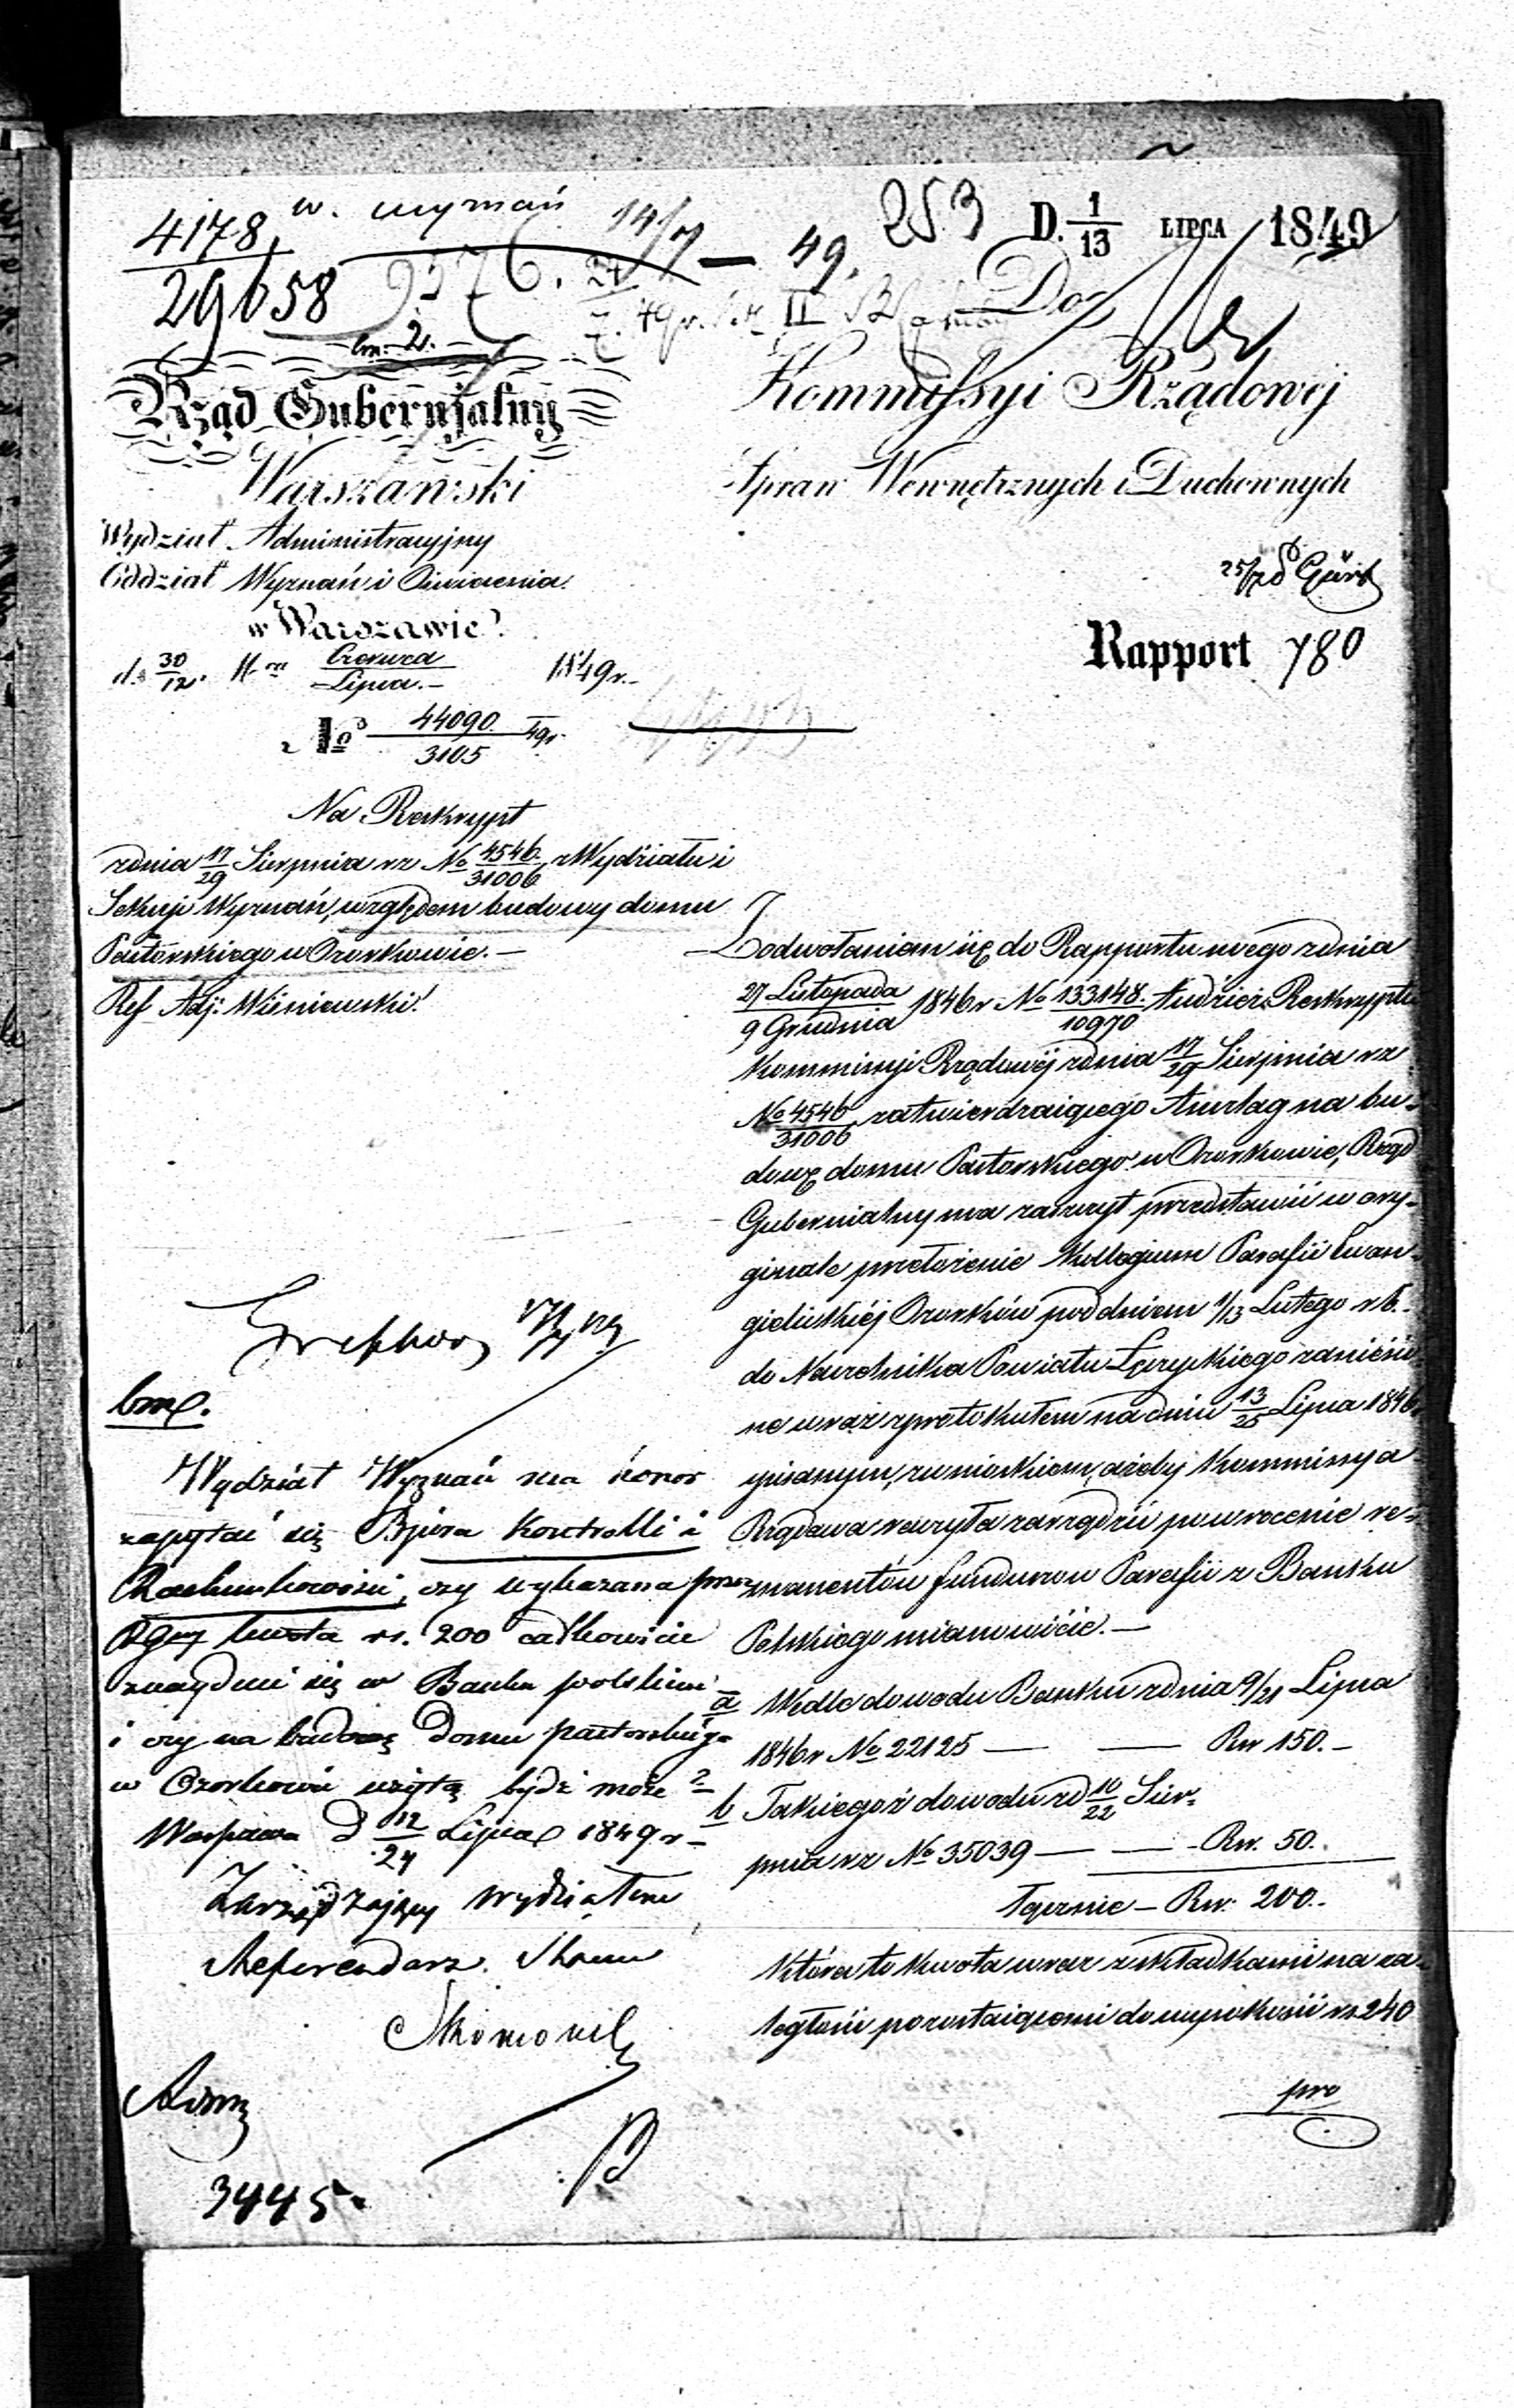 4178
29658
w. wyznań 14/7 — 49.
253
D. 1/13 LIPCA 1849
9576.
Do
Rząd Gubernialny
Warszawski
Wydział Administracyjny
Oddział Wyznań i Oświecenia
w Warszawie
d. 30/12 Mca Czerwca/Lipca.— 1849 r.—
No 44090/3105 49 r
Kommissyi Rządowéj
Spraw Wewnętrznych i Duchownych
Rapport 780
Na Reskrypt
z dnia 17/29 Sierpnia rz No 4546/31006 z Wydziału i
Sekcyi Wyznań, względem budowy domu
Pastorskiego w Ozorkowie.—
Ref. Adj: Wiśniewski
Z odwołaniem się do Rapportu swego z dnia
27 Listopada/9 Grudnia 1846 r No 133148/10970 tudzież Reskryptu
Kommissyi Rządowéj z dnia 17/29 Sierpnia rz
No 4546/31006 zatwierdzaiącego Anszlag na bu-
dowę domu Pastorskiego w Ozorkowie, Rząd
Gubernialny ma zaszczyt przedstawić w ory-
ginale przełożenie Kollegium Parafii Ewan-
gielickiéj Ozorków pod dniem 1/13 Lutego rb.
do Naczelnika Powiatu Łęczyckiego zaniesio-
ne wraz z protokułem na dniu 13/25 Lipca 1846 r
spisanym, z wnioskiem, ażeby Kommissya
Rządowa raczyła zarządzić powrócenie re-
manentów funduszów Parafii z Banku
Polskiego mianowicie.—
a Wedle dowodu Banku z dnia 9/21 Lipca
1846 r No 22125 — — Rsr 150.—
b Takiegoż dowodu z d 10/22 Sier-
pnia rz No 35039 — — Rsr. 50.
Łącznie — Rsr. 200.
która to kwota wraz z składkami na za-
ległości pozostaiącemi do wysokości rs 240
pro
bml.
Wydział Wyznań ma honor
zapytać się Bjóra Kontrolli i
Rachunkowości, czy wykazana przez
RGny kwota rs. 200 całkowicie
znayduie się w Banku polskim
i czy na budowę Domu pastorskiego
w Ozorkowie użytą bydź może?
Warszawa d 12/24 Lipca 1849 r—
Zarządzający Wydziałem
Referendarz Stanu
3445